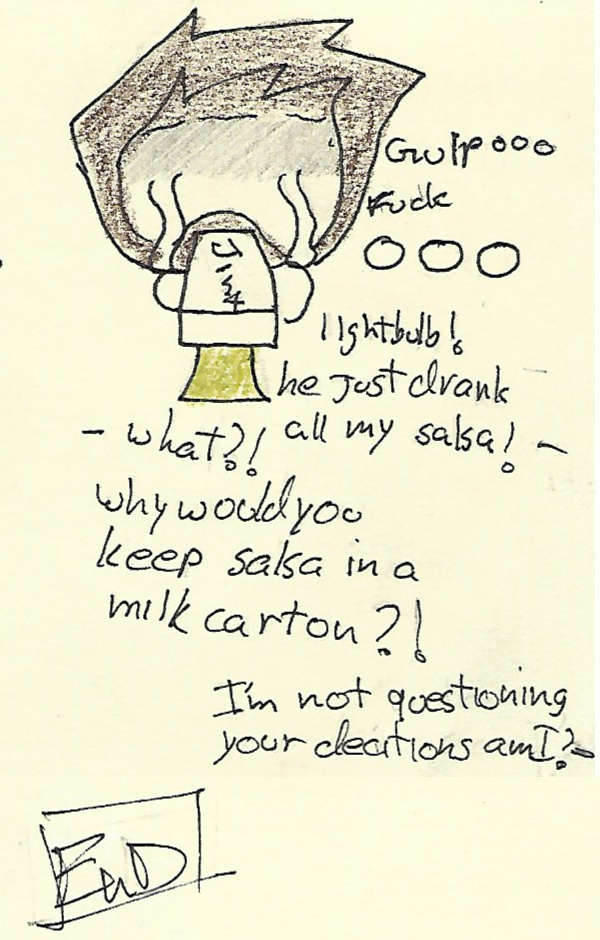 Gulp ooo
Fuck
OOO
Jim
lightbulb!
he just drank
all my salsa! ~
- what?!
why would you
keep salsa in a
milk carton?!
I'm not questioning
your decitions am I?~
END